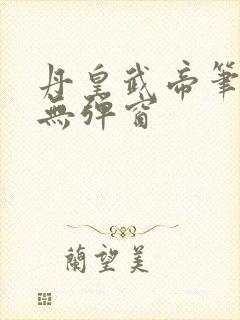 丹皇武帝筆
無彈窗
蘭望美